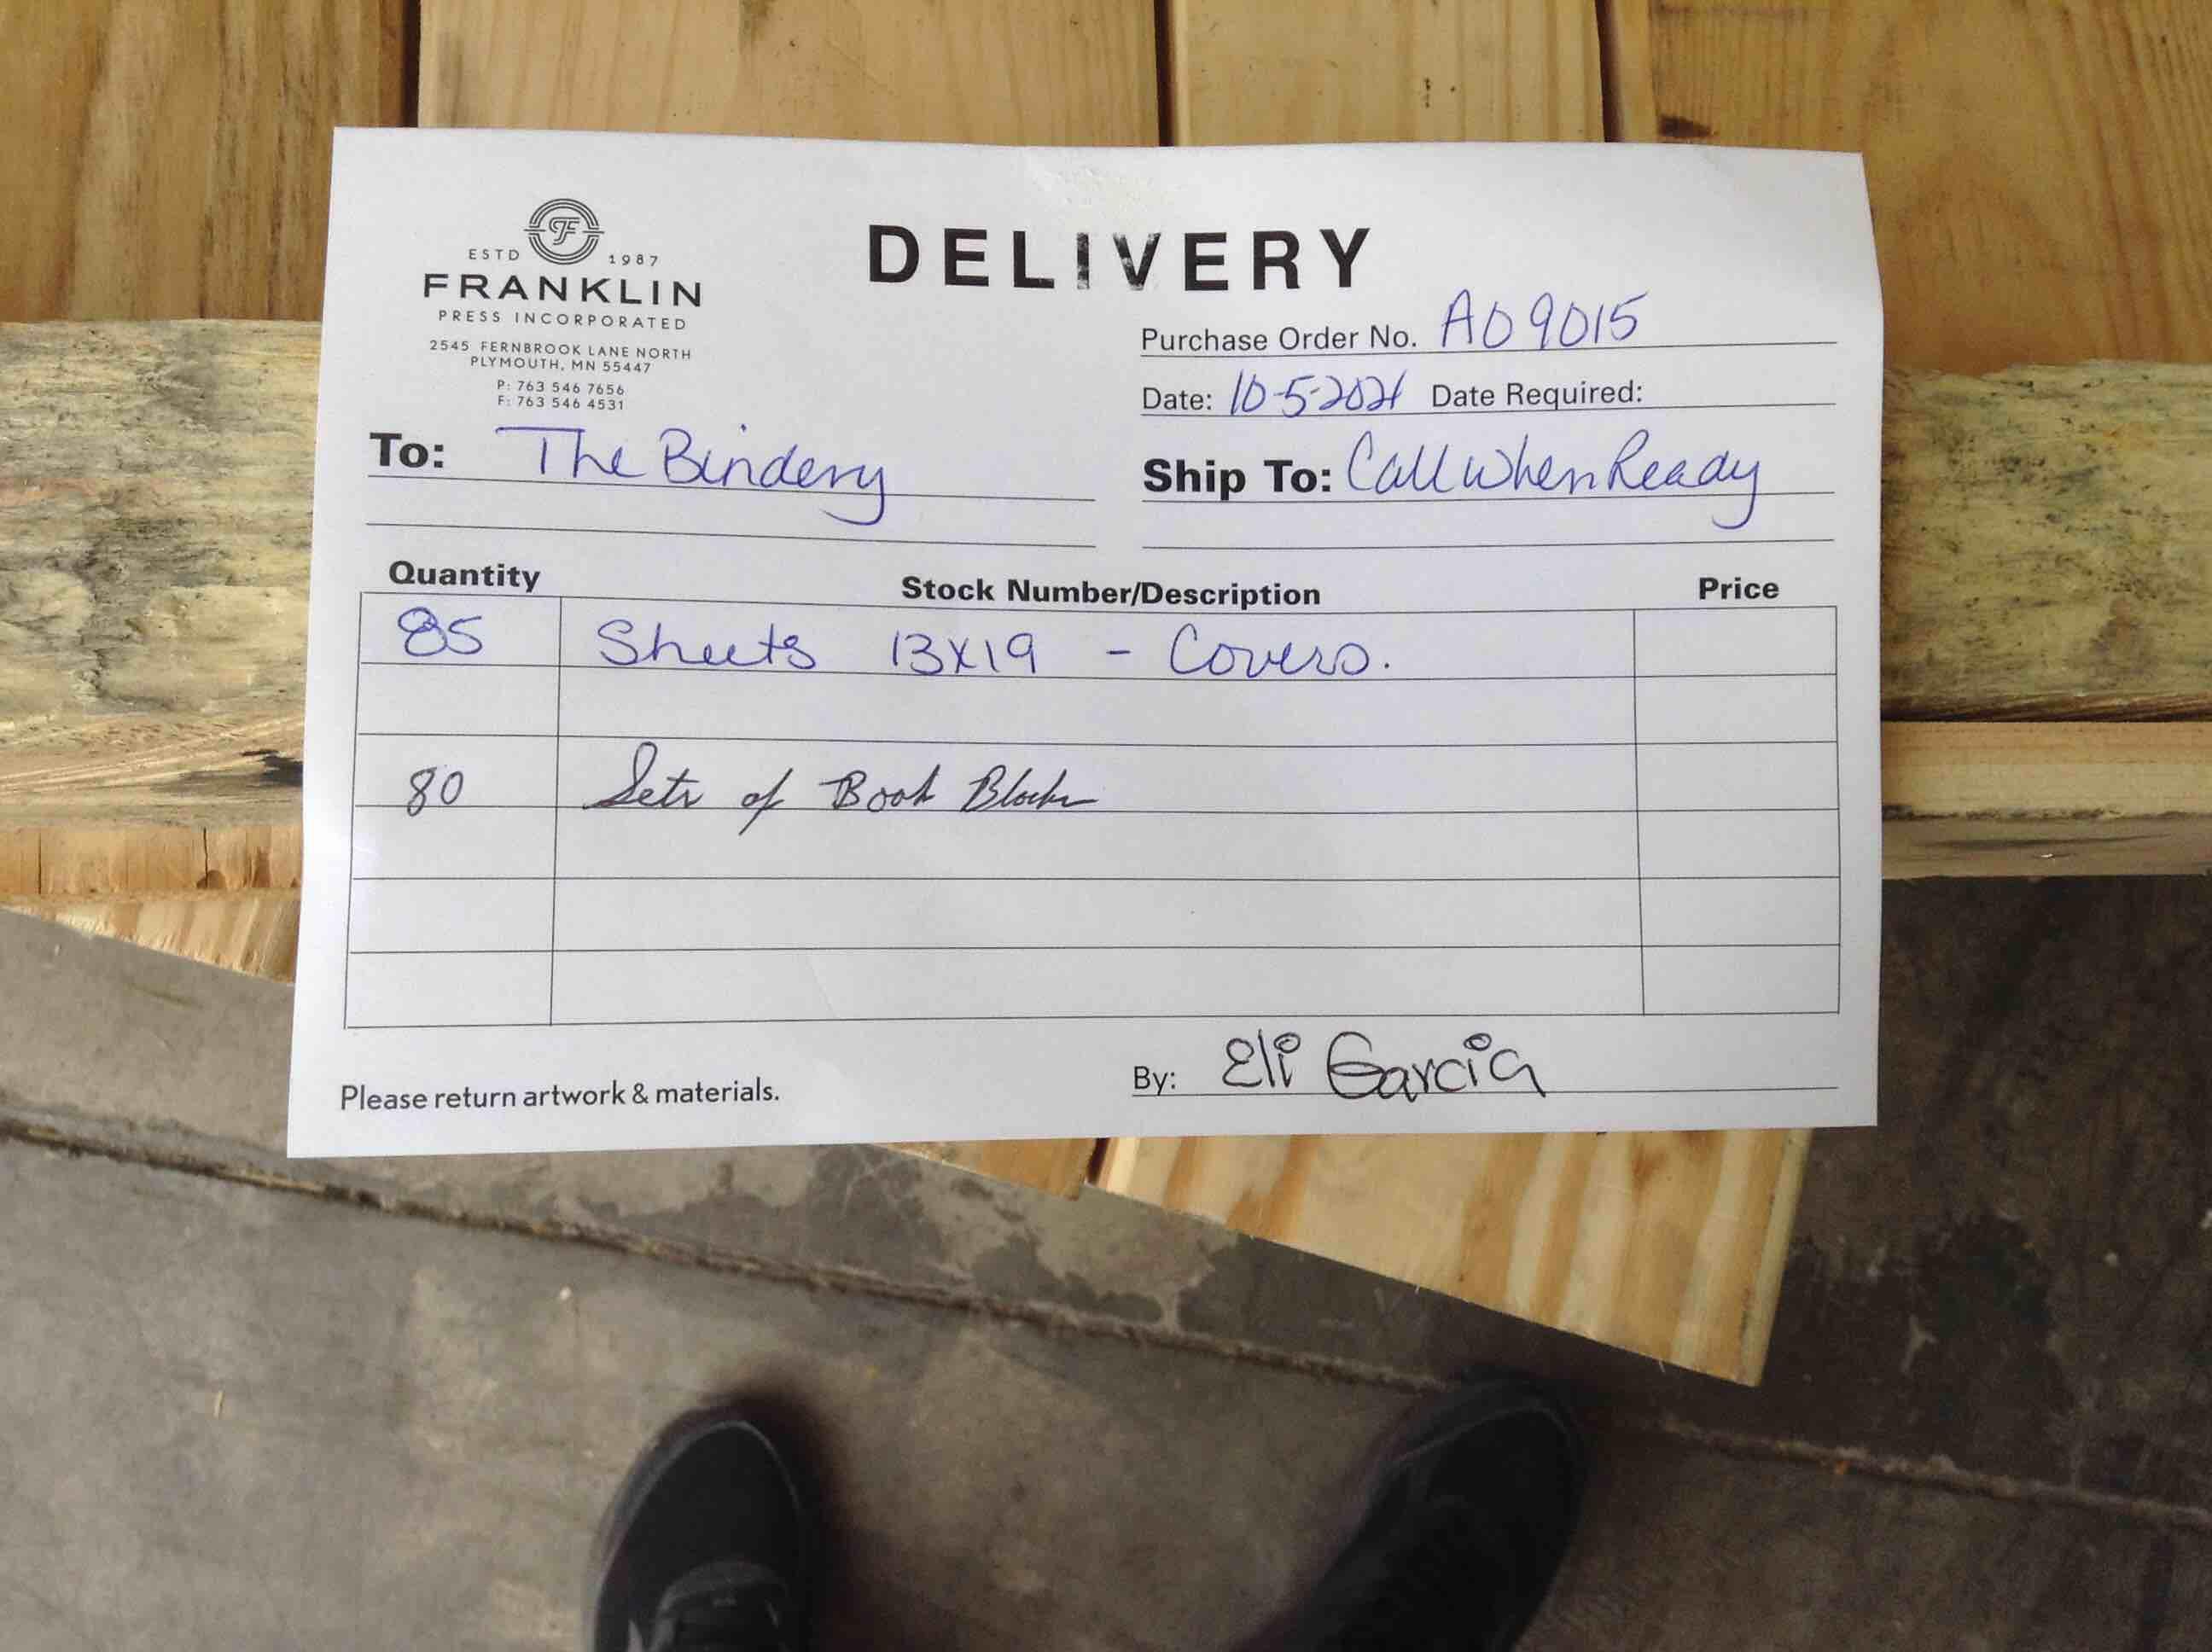 ESTD 1987
FRANKLIN
PRESS INCORPORATED
2545 FERNBROOK LANE NORTH
PLYMOUTH, MN 55447
P: 763 546 7656
F: 763 546 4531
DELIVERY
Purchase Order No. A09015
Date: 10-5-2021 Date Required:
To: The Bindery
Ship To: Call When Ready
Quantity Stock Number/Description Price
85 Sheets 13x19 - Covers.
80 Sets of Book Blocks
Please return artwork & materials.
By: Eli Garcia